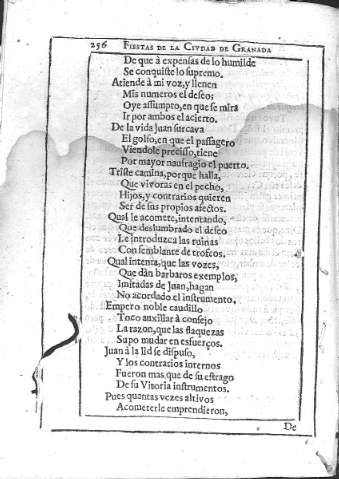 256 FIESTAS DE LA CIVDAD DE GRANADA
De que à expensas de lo humilde
Se conquiste lo supremo.
Atiende à mi voz, y llenen
Mis numeros el deseo;
Oye assumpto, en que se mira
Ir por ambos el acierto.
De la vida Juan surcava
El golfo, en que el passagero
Viendole precisso, tiene
Por mayor naufragio el puerto.
Triste camina, porque halla,
Que vivoras en el pecho,
Hijos, y contrarios quieren
Ser de sus propios afectos.
Qual le acomete, intentando,
Que deslumbrado el deseo
Le introduzca las ruinas
Con semblante de trofeos.
Qual intenta, que las vozes,
Que dàn barbaros exemplos,
Imitadas de Juan, hagan
No acordado el instrumento.
Empero noble caudillo
Toco auxiliar à consejo
La razon, que las flaquezas
Supo mudar en esfuerços.
Juan à la lid se dispuso,
Y los contrarios internos
Fueron mas, que de su estrago
De su Vitoria instrumentos.
Pues quantas vezes altivos
Acometerle emprendieron,
De